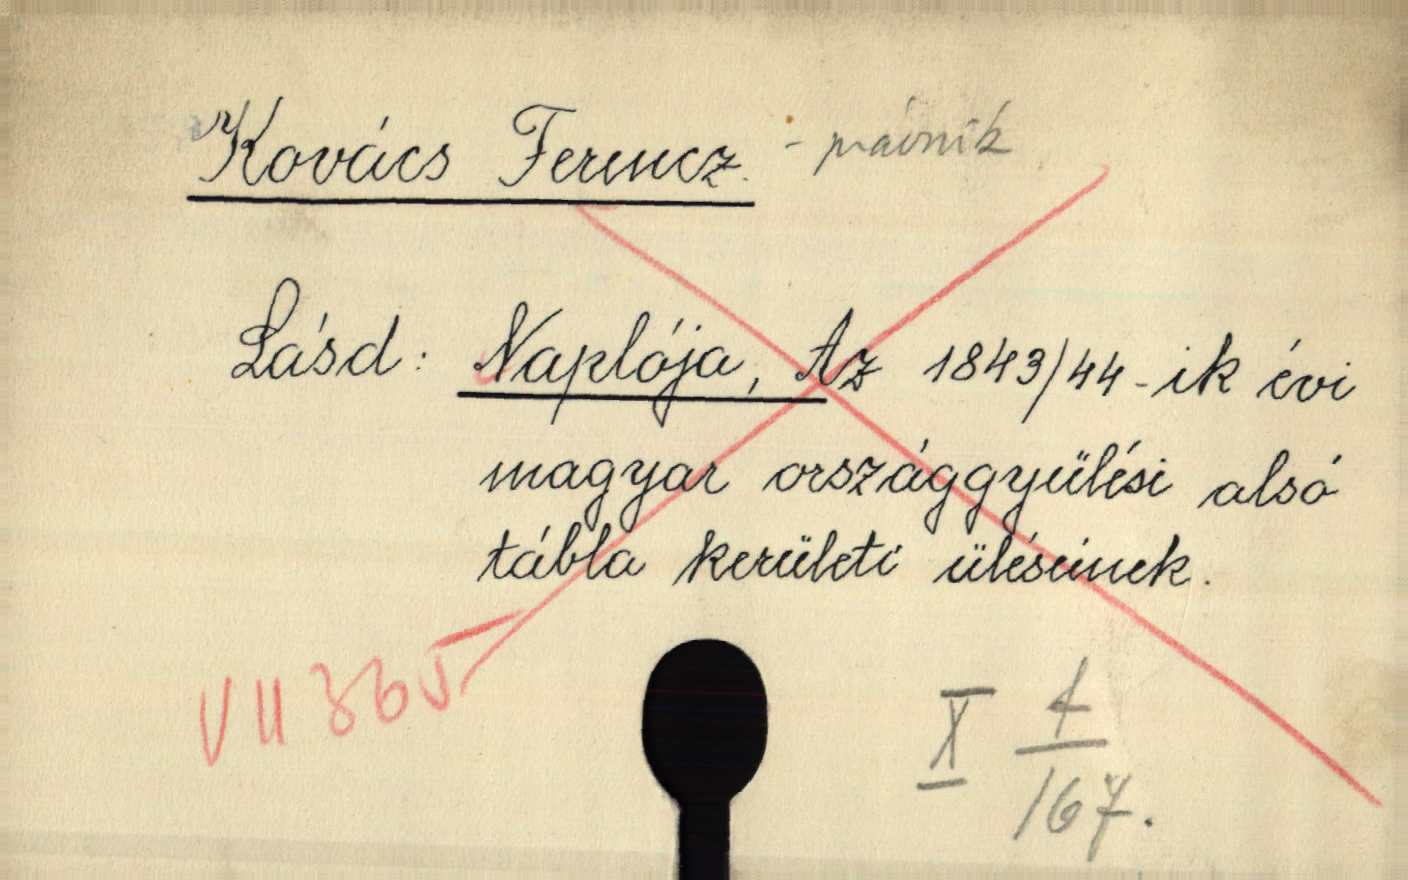 Kovács Ferencz. - právnik
Lásd: Naplója, Az 1843/44-ik évi
magyar országgyülési alsó
tábla kerületi üléseinek.
VII 365
X 1/167.